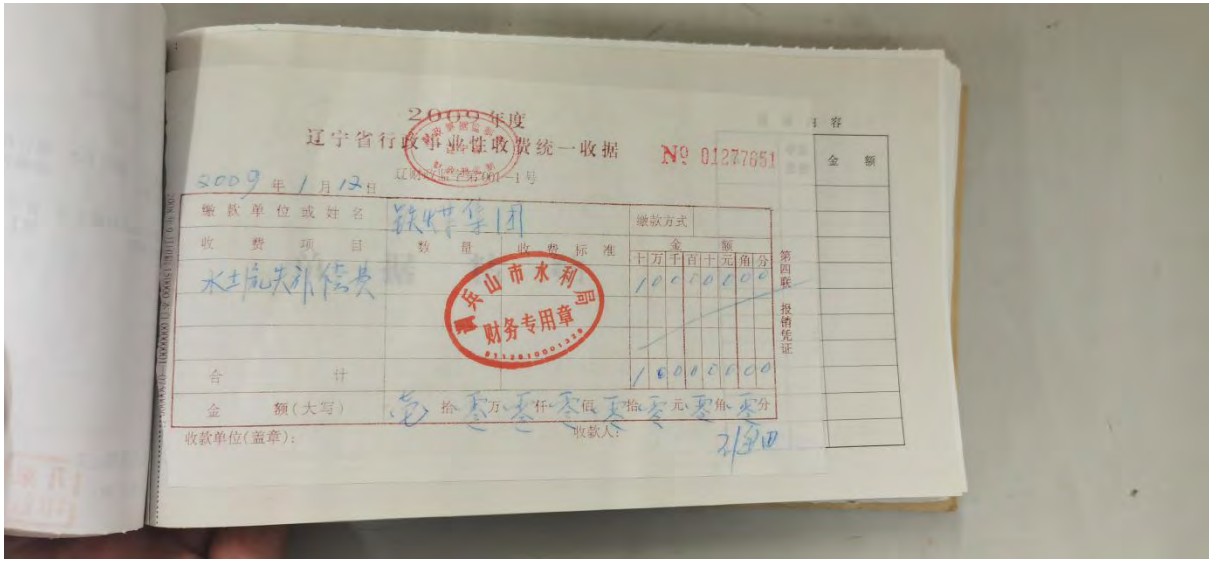 2009年度
辽宁省行政事业性收费统一收据
№ 01277651
辽财政监字第001—1号
2009年1月12日
缴款单位或姓名 铁煤集团 缴款方式
收费项目 数量 收费标准 金额
十万千百十元角分
水土流失补偿费 10000000
合计 10000000
金额(大写) 壹拾零万零仟零佰零拾零元零角零分
收款单位(盖章): 收款人:
第四联 报销凭证
调兵山市水利局
财务专用章
容
金额